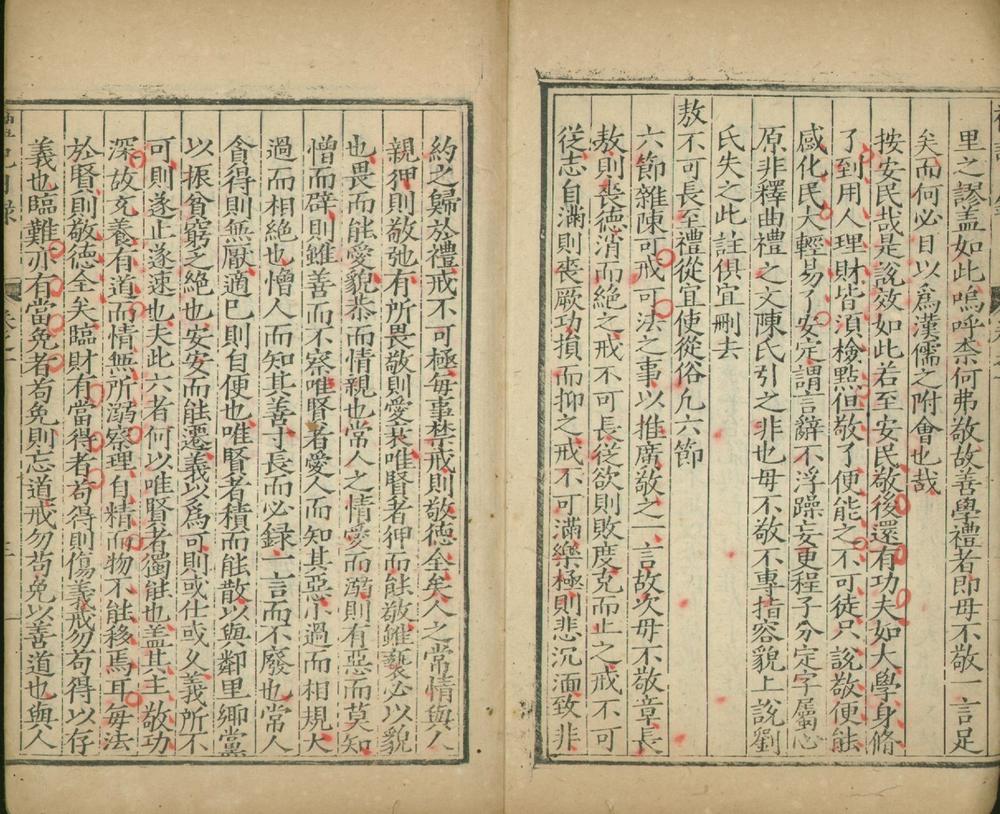 里之謬盖如此嗚呼柰何弗敬故善學禮者即毋不敬一言足
矣而何必日以爲漢儒之附會也哉
按安民哉是說效如此若至安民敬後還有功夫如大學身脩
了到用人理財皆湏檢點但敬了便能之不可徒只說敬便能
感化民大輕易了安定謂言辭不浮躁妄更程子分定字屬心
原非釋曲禮之文陳氏引之非也毋不敬不專指容貌上說劉
氏失之此註俱宜刪去
敖不可長至禮從宜使從俗凢六節
六節雜陳可戒可法之事以推廣敬之一言故次毋不敬章長
敖則喪德消而絶之戒不可長從欲則敗度克而止之戒不可
從志自滿則喪厥功損而抑之戒不可滿樂極則悲沉湎致非
約之歸於禮戒不可極每事禁戒則敬德全矣人之常情與人
親狎則敬弛有所畏敬則愛衰唯賢者狎而能敬雖褻必以貌
也畏而能愛貌恭而情親也常人之情愛而溺則有惡而莫知
憎而辟則雖善而不察唯賢者愛人而知其惡小過而相規大
過而相絶也憎人而知其善寸長而必録一言而不廢也常人
貪得則無厭適巳則自便也唯賢者積而能散以與鄰里鄉黨
以振貧窮之絶也安安而能遷義以爲可則或仕或久義所不
可則遂止遂速也夫此六者何以唯賢者獨能也盖其主敬功
深故交養有道而情無所溺察理自精而物不能移焉耳每法
於賢則敬德全矣臨財有當得者苟得則傷義戒勿苟得以存
義也臨難亦有當免者苟免則忘道戒勿苟免以善道也與人